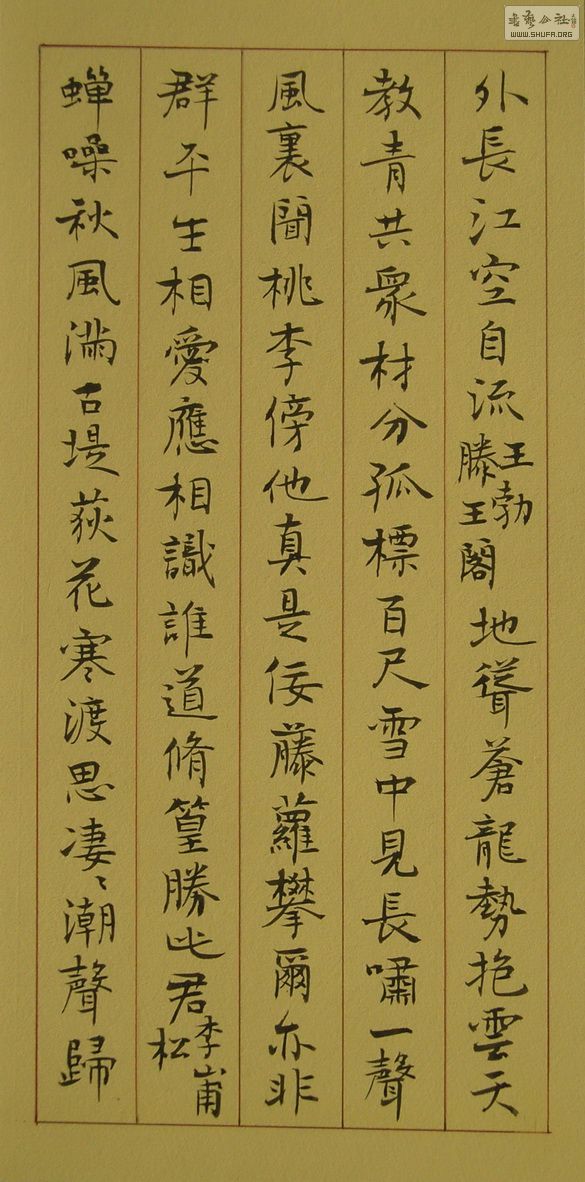 書藝公社
WWW.SHUFA.ORG
外長江空自流王勃滕王閣地聳蒼龍勢抱雲天
教青共衆材分孤標百尺雪中見長嘯一聲
風裏聞桃李傍他真是佞藤蘿攀爾亦非
群平生相愛應相識誰道脩篁勝此君李山甫松
蟬噪秋風滿古堤荻花寒渡思淒〻潮聲歸